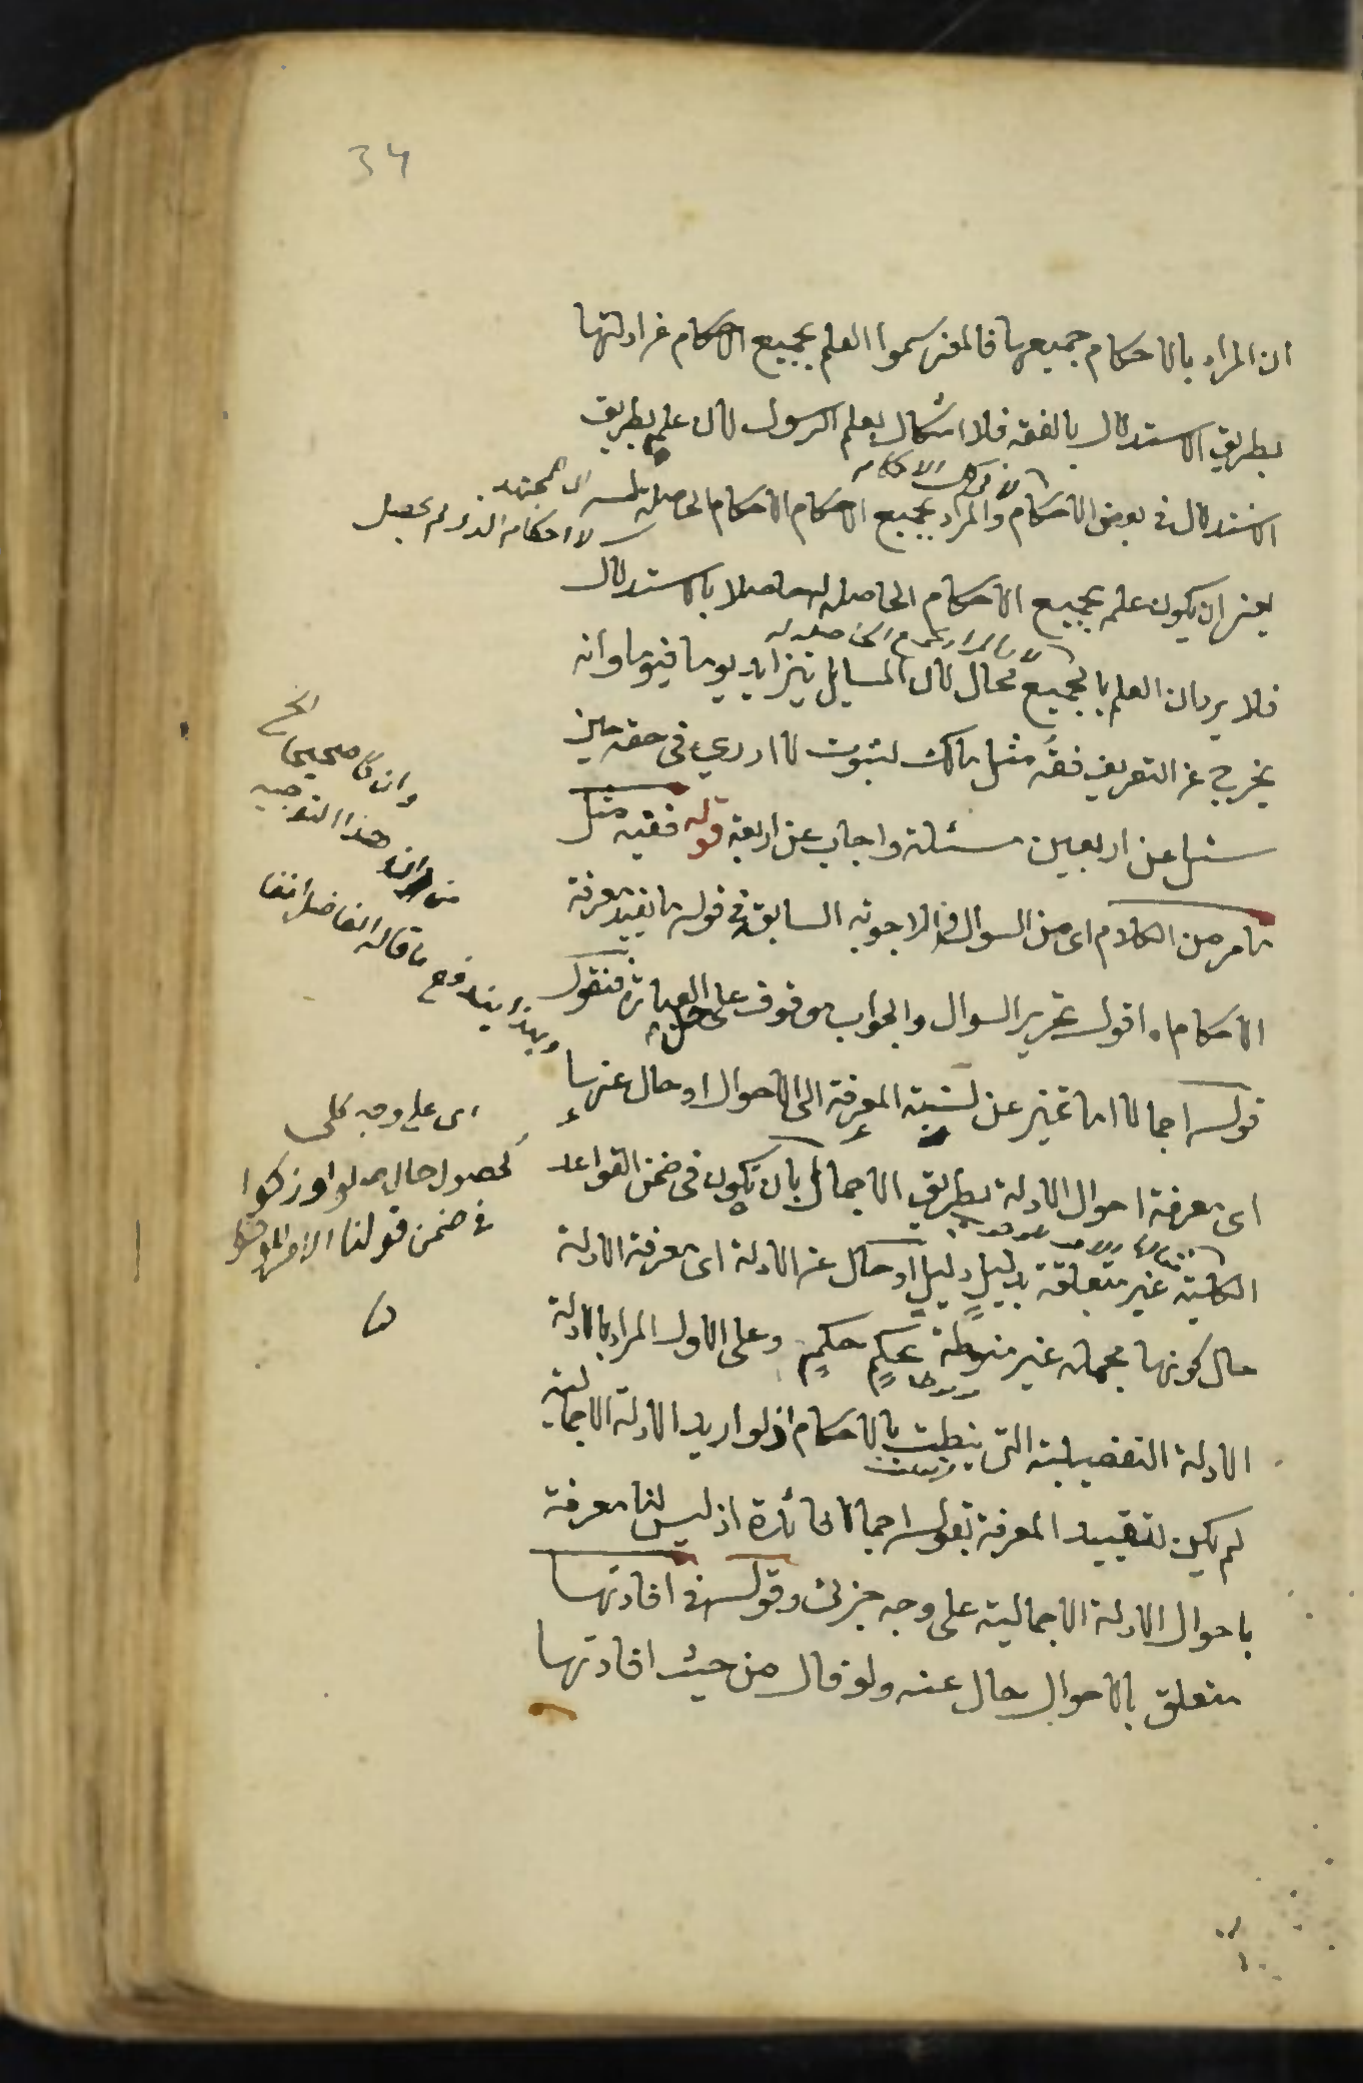 34
ان المراد بالاحكام جميعها فالمعنى سموا العلم بجميع الاحكام عن ادلتها
بطريق الاستدلال بالفقه فلا اشكال بعلم الرسول لان علم بطريق
الاستدلال في بعض الاحكام والمراد بجميع الاحكام الاحكام الحاصلة
لا احكام الذي لم يحصل
يعني ان يكون علمه بجميع الاحكام الحاصلة له حاصلا بالاستدلال
فلا يرد ان العلم بالجميع محال لان المسايل تتزايد يوما فيوما وانه
يخرج عن التعريف فقه مثل مالك لثبوت لا ادري في حقه حين
سئل عن اربعين مسئلة واجاب عن اربعة قوله فقيه مثل
ما مر من الكلام اى من السوال والاجوبة السابق في قوله ما يفيد معرفة
الاحكام اه اقول تحرير السوال والجواب موقوف على حل العبارة فنقول
قوله اجمالا اما تميز عن نسبة المعرفة الى الاحوال او حال عنها
اى معرفة احوال الادلة بطريق الاجمال بان تكون في ضمن القواعد
الكلية غير متعلقة بدليل دليل او حال عن الادلة اى معرفة الادلة
حال كونها مجملة غير منوطة بحكم حكم وعلى الاول المراد بالادلة
الادلة التفصيلية التي ينطت بالاحكام اذ لو اريد الادلة الاجمالية
لم يكن لتقييد المعرفة بقوله اجمالا فائدة اذ ليس لنا معرفة
باحوال الادلة الاجمالية على وجه جزئي وقوله في افادتها
متعلق بالاحوال حال عنه ولو قال من حيث افادتها
وان كا صحيحا الخ
هذا التوجيه
وبهذا يندفع ما قاله الفاضل انفا
اى على وجه كلى
كحصول حال
في ضمن قولنا الامر